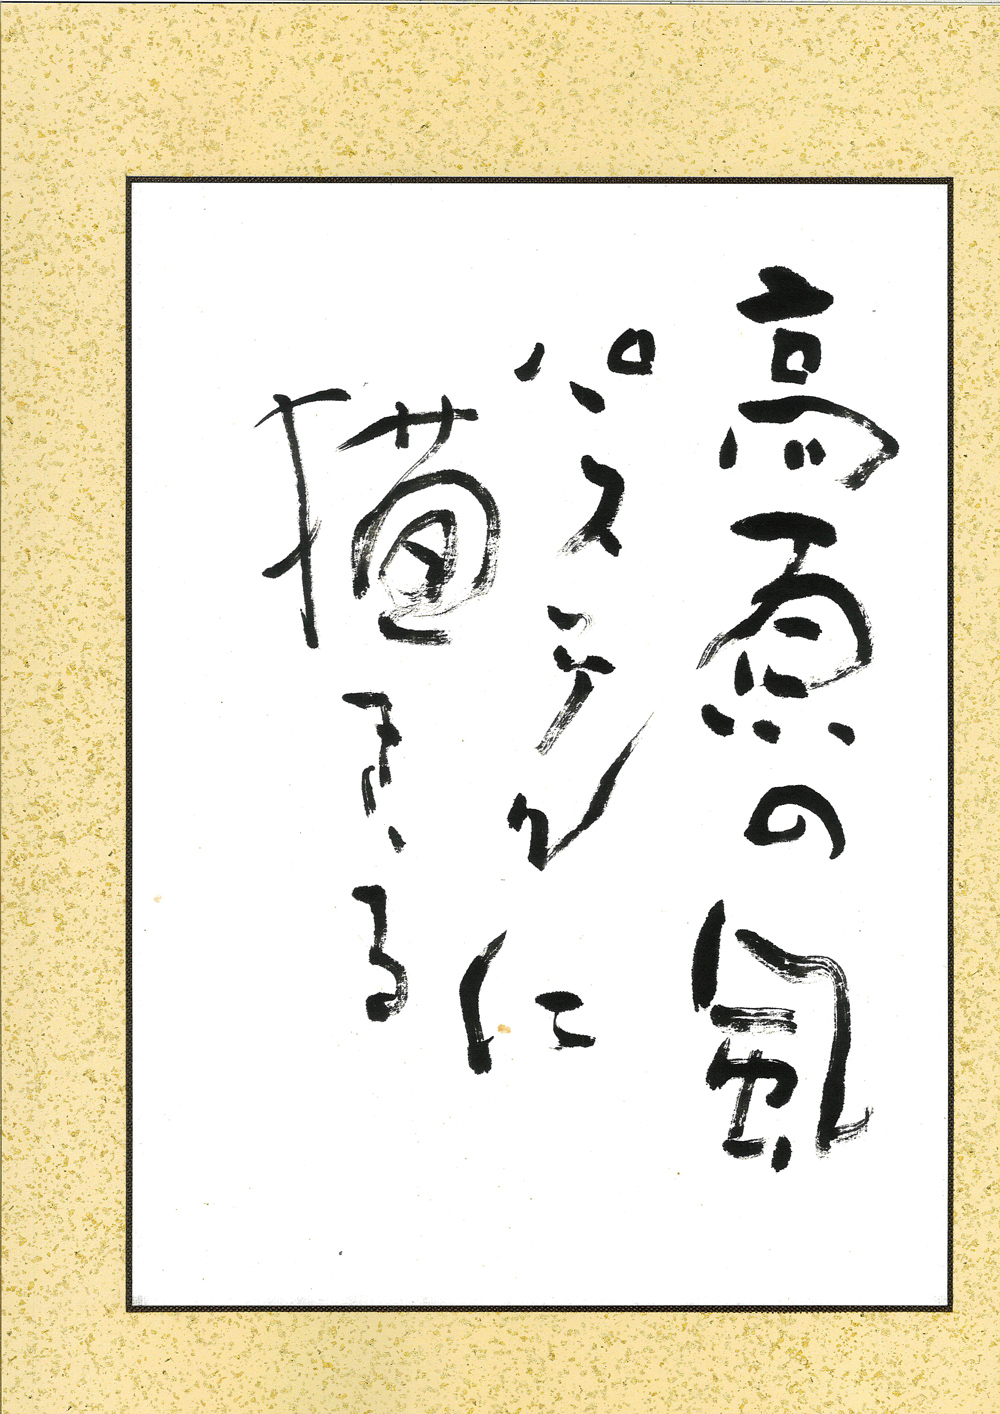 高原の風
パステルに
描きゝる